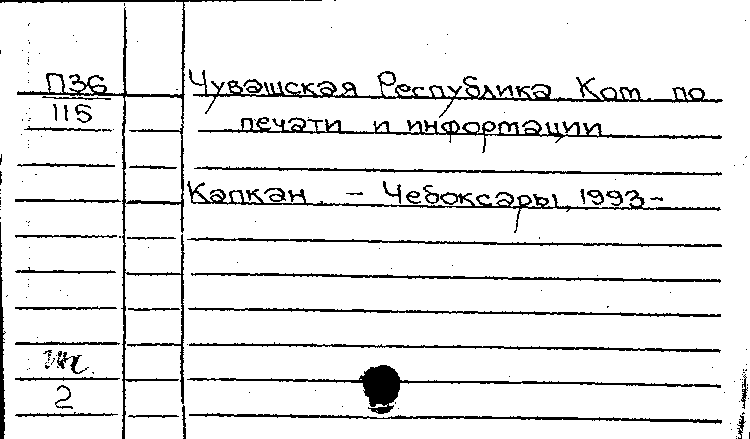 П36 Чувашская Республика. Ком. по
115 печати и информации
Капкан. – Чебоксары, 1993–
2